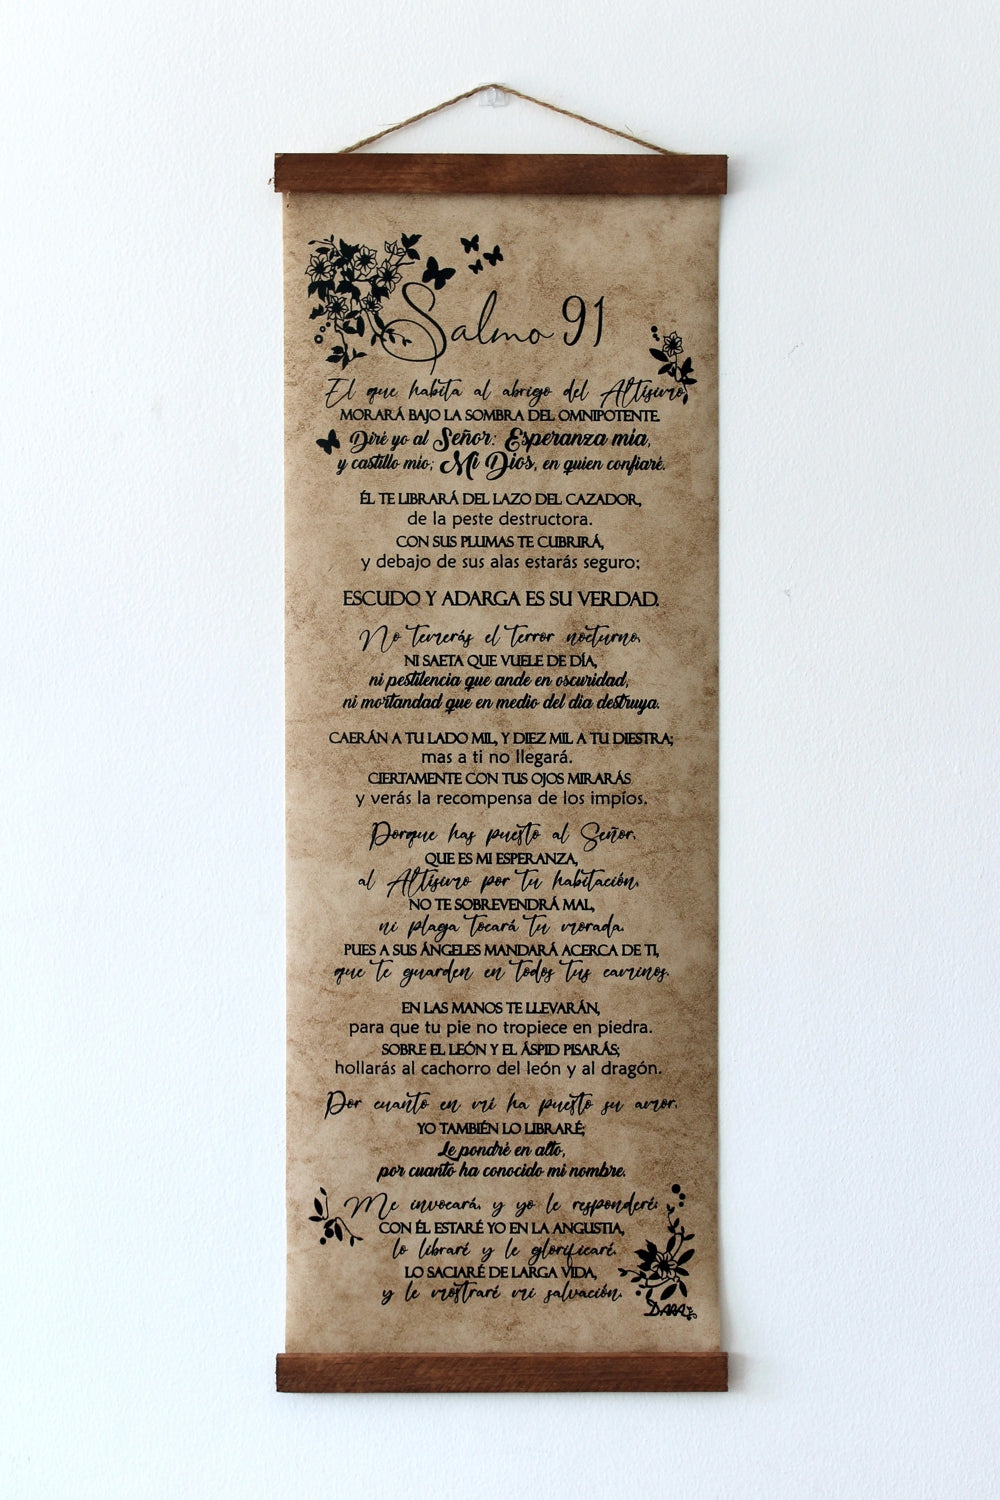 Salmo 91
El que habita al abrigo del Altísimo,
MORARÁ BAJO LA SOMBRA DEL OMNIPOTENTE.
Diré yo al Señor: Esperanza mía,
y castillo mío; Mi Dios, en quien confiaré.
ÉL TE LIBRARÁ DEL LAZO DEL CAZADOR,
de la peste destructora.
CON SUS PLUMAS TE CUBRIRÁ,
y debajo de sus alas estarás seguro;
ESCUDO Y ADARGA ES SU VERDAD.
No temerás el terror nocturno,
NI SAETA QUE VUELE DE DÍA,
ni pestilencia que ande en oscuridad,
ni mortandad que en medio del día destruya.
CAERÁN A TU LADO MIL, Y DIEZ MIL A TU DIESTRA;
mas a ti no llegará.
CIERTAMENTE CON TUS OJOS MIRARÁS
y verás la recompensa de los impíos.
Porque has puesto al Señor,
QUE ES MI ESPERANZA,
al Altísimo por tu habitación,
NO TE SOBREVENDRÁ MAL,
ni plaga tocará tu morada.
PUES A SUS ÁNGELES MANDARÁ ACERCA DE TI,
que te guarden en todos tus caminos.
EN LAS MANOS TE LLEVARÁN,
para que tu pie no tropiece en piedra.
SOBRE EL LEÓN Y EL ÁSPID PISARÁS;
hollarás al cachorro del león y al dragón.
Por cuanto en mí ha puesto su amor,
YO TAMBIÉN LO LIBRARÉ;
Le pondré en alto,
por cuanto ha conocido mi nombre.
Me invocará, y yo le responderé;
CON ÉL ESTARÉ YO EN LA ANGUSTIA,
lo libraré y le glorificaré.
LO SACIARÉ DE LARGA VIDA,
y le mostraré mi salvación.